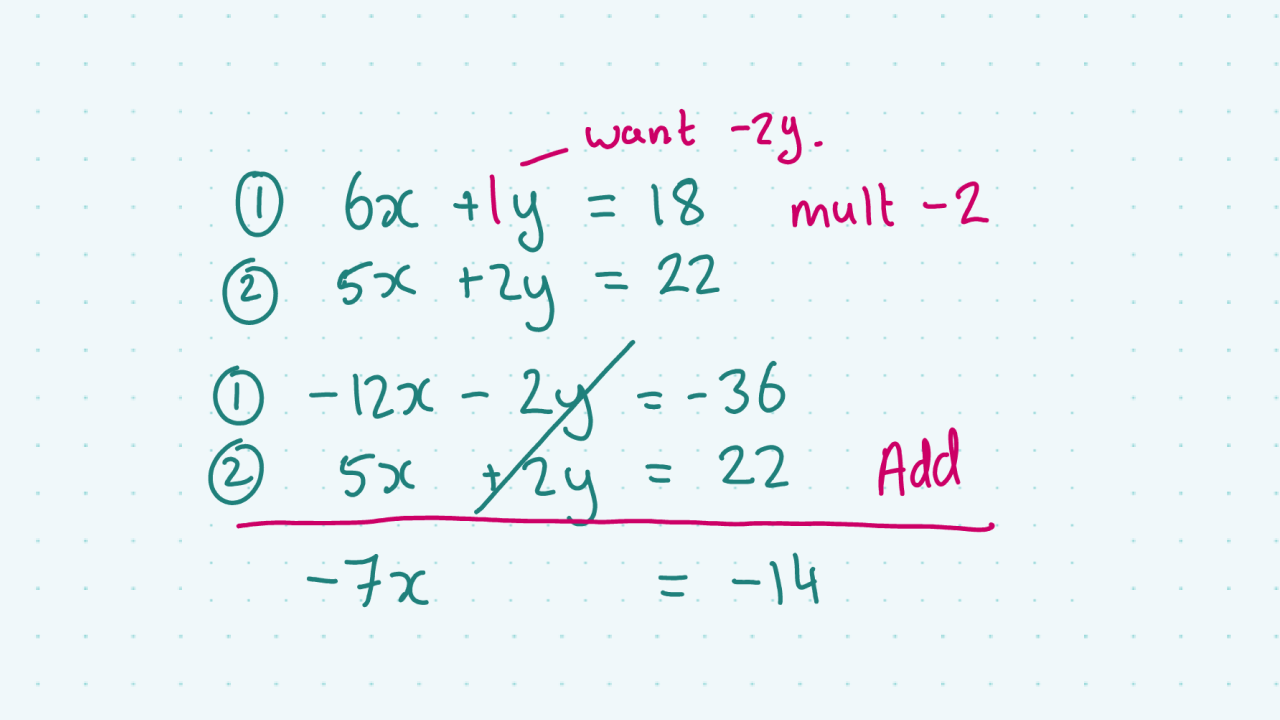 want -2y.
① 6x +1y = 18 mult -2
② 5x +2y = 22
① -12x - 2y = -36
② 5x +2y = 22 Add
-7x = -14